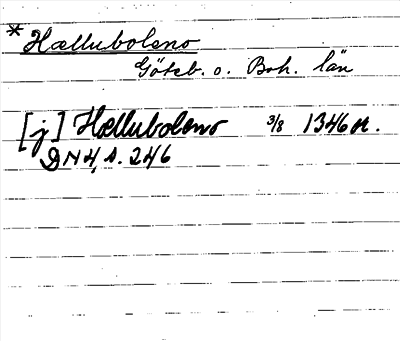 * Hælluboleno
Göteb. o. Boh. län
[j] Hælluboleno 3/8 1346 A.
DN 4, s. 246